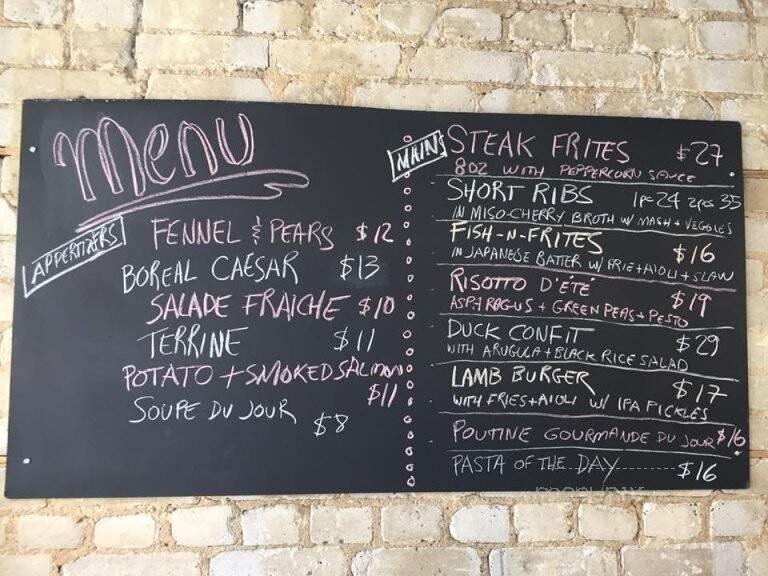 Menu
APPERTIZERS
FENNEL & PEARS $12
BOREAL CAESAR $13
SALADE FRAICHE $10
TERRINE $11
POTATO + SMOKED SALMON
$11
SOUPE DU JOUR $8
MAINS
STEAK FRITES $27
8OZ WITH PEPPERCORN SAUCE
SHORT RIBS 1PC 24 2PCS 35
IN MISO-CHERRY BROTH W/ MASH + VEGGIES
FISH-N-FRITES $16
IN JAPANESE BATTER W/ FRIE+AIOLI+SLAW
RISOTTO D'ÉTÉ $19
ASPARAGUS + GREEN PEAS + PESTO
DUCK CONFIT $29
WITH ARUGULA + BLACK RICE SALAD
LAMB BURGER $17
WITH FRIES+AIOLI W/ IPA PICKLES
POUTINE GOURMANDE DU JOUR $16
PASTA OF THE DAY-------- $16